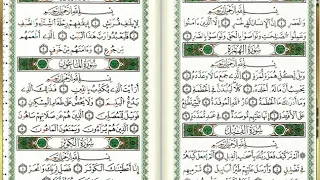 بِسْمِ اللَّهِ الرَّحْمَٰنِ الرَّحِيمِ
وَالْعَصْرِ إِنَّ الْإِنسَانَ لَفِي خُسْرٍ إِلَّا الَّذِينَ آمَنُوا
وَعَمِلُوا الصَّالِحَاتِ وَتَوَاصَوْا بِالْحَقِّ وَتَوَاصَوْا بِالصَّبْرِ
سُورَةُ الهُمَزَةِ
بِسْمِ اللَّهِ الرَّحْمَٰنِ الرَّحِيمِ
وَيْلٌ لِّكُلِّ هُمَزَةٍ لُّمَزَةٍ الَّذِي جَمَعَ مَالًا وَعَدَّدَهُ
يَحْسَبُ أَنَّ مَالَهُ أَخْلَدَهُ كَلَّا لَيُنبَذَنَّ فِي الْحُطَمَةِ
وَمَا أَدْرَاكَ مَا الْحُطَمَةُ نَارُ اللَّهِ الْمُوقَدَةُ الَّتِي تَطَّلِعُ
عَلَى الْأَفْئِدَةِ إِنَّهَا عَلَيْهِم مُّؤْصَدَةٌ فِي عَمَدٍ مُّمَدَّدَةٍ
سُورَةُ الفِيلِ
بِسْمِ اللَّهِ الرَّحْمَٰنِ الرَّحِيمِ
أَلَمْ تَرَ كَيْفَ فَعَلَ رَبُّكَ بِأَصْحَابِ الْفِيلِ أَلَمْ يَجْعَلْ كَيْدَهُمْ
فِي تَضْلِيلٍ وَأَرْسَلَ عَلَيْهِمْ طَيْرًا أَبَابِيلَ
بِسْمِ اللَّهِ الرَّحْمَٰنِ الرَّحِيمِ
لِإِيلَافِ قُرَيْشٍ إِيلَافِهِمْ رِحْلَةَ الشِّتَاءِ وَالصَّيْفِ
فَلْيَعْبُدُوا رَبَّ هَٰذَا الْبَيْتِ الَّذِي أَطْعَمَهُم
مِّن جُوعٍ وَآمَنَهُم مِّنْ خَوْفٍ
سُورَةُ المَاعُونِ
بِسْمِ اللَّهِ الرَّحْمَٰنِ الرَّحِيمِ
أَرَأَيْتَ الَّذِي يُكَذِّبُ بِالدِّينِ فَذَٰلِكَ الَّذِي
يَدُعُّ الْيَتِيمَ وَلَا يَحُضُّ عَلَىٰ طَعَامِ الْمِسْكِينِ
فَوَيْلٌ لِّلْمُصَلِّينَ الَّذِينَ هُمْ عَن صَلَاتِهِمْ سَاهُونَ
الَّذِينَ هُمْ يُرَاءُونَ وَيَمْنَعُونَ الْمَاعُونَ
سُورَةُ الكَوْثَرِ
بِسْمِ اللَّهِ الرَّحْمَٰنِ الرَّحِيمِ
إِنَّا أَعْطَيْنَاكَ الْكَوْثَرَ فَصَلِّ لِرَبِّكَ وَانْحَرْ